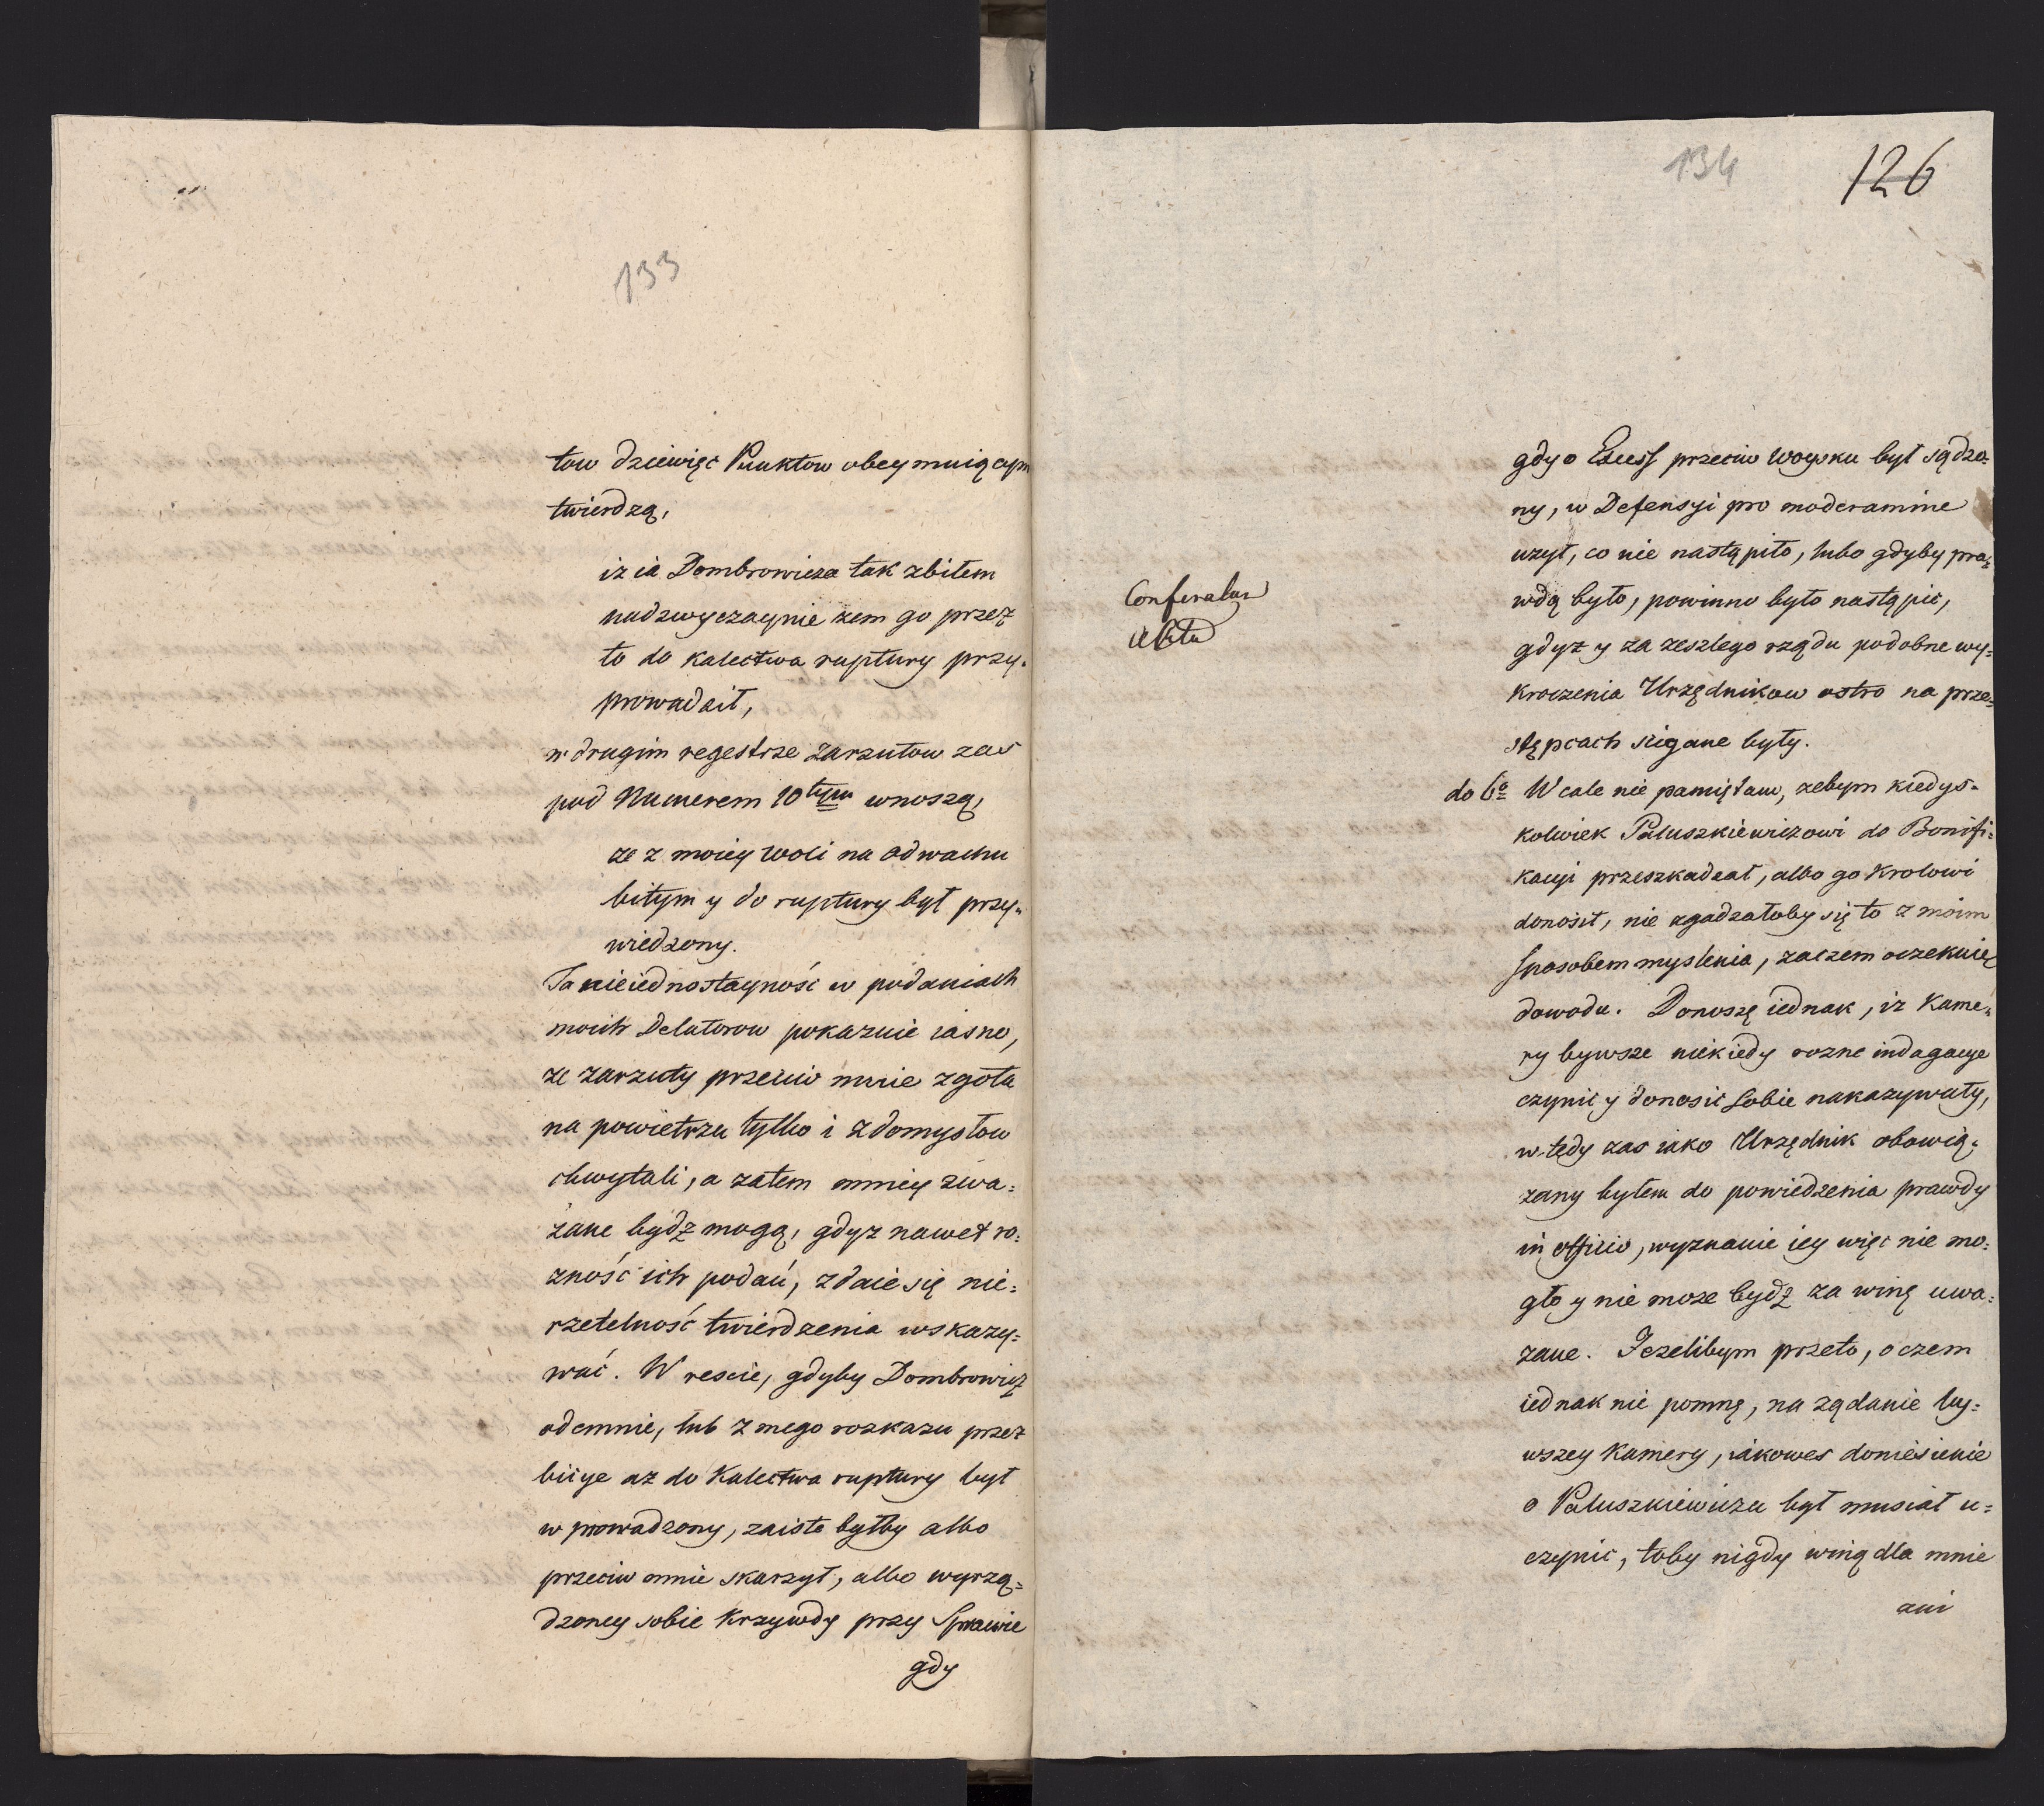 133
tow dziewięc Punktow obeymuiącym
twierdzą,
iz ia Dombrowicza tak zbiłem
nadzwyczaynie zem go przez
to do kalectwa ruptury przy-
prowadził,
w drugim regestrze zarzutow zas
pod Numerem 10tym wnoszą,
ze z moiey woli na odwachu
bitym y do ruptury był przy-
wiedzony.
Ta nieiednostayność w podaniach
moich Delatorow pokazuie iasno,
ze zarzuty przeciw mnie zgoła
na powietrzu tylko i z domysłow
chwytali, a zatem mniey zwa=
żane bydz mogą, gdyz nawet ro=
zność ich podań, zdaie się nie=
rzetelność twierdzenia wskazy=
wać. W rescie, gdyby Dombrowicz
odemnie, lub z mego rozkazu przez
biicye az do Kalectwa ruptury był
wprowadzony, zaiste byłby albo
przeciw mnie skarzył, albo wyrzą=
dzoney sobie Krzywdy przy Sprawie
gdy
134
126
gdy o Excess przeciw woysku był sądzo=
ny, w Defensyi pro moderamine
uzył, co nie nastąpiło, lubo gdyby pra=
wdą było, powinno było nastąpić,
gdyz y za zeszlego rządu podobne wy=
kroczenia Urzędnikow ostro na prze=
stępcach scigane były.
Conferatur
Acta
do 6o Wcale nie pamiętam, zebym kiedys=
kolwiek Paluszkiewiczowi do Bonifi=
kacyi przeszkadzał, albo go Krolowi
donosił, nie zgadzałoby się to z moim
sposobem myslenia, zaczem oczekuię
dowodu. Donoszę iednak, iz Kame=
ry bywsze niekiedy rozne indagacye
czynic y donosic sobie nakazywały,
wtedy zas iako Urzędnik obowią=
zany byłem do powiedzenia prawdy
in officio, wyznanie iey więc nie mo=
gło y nie moze bydz za winę uwa=
zane. Jezelibym przeto, o czem
iednak nie pomnę, na ządanie by=
wszey Kamery, iakowes doniesienie
o Paluszkiewiczu był musiał u=
czynic, toby nigdy winą dla mnie
ani